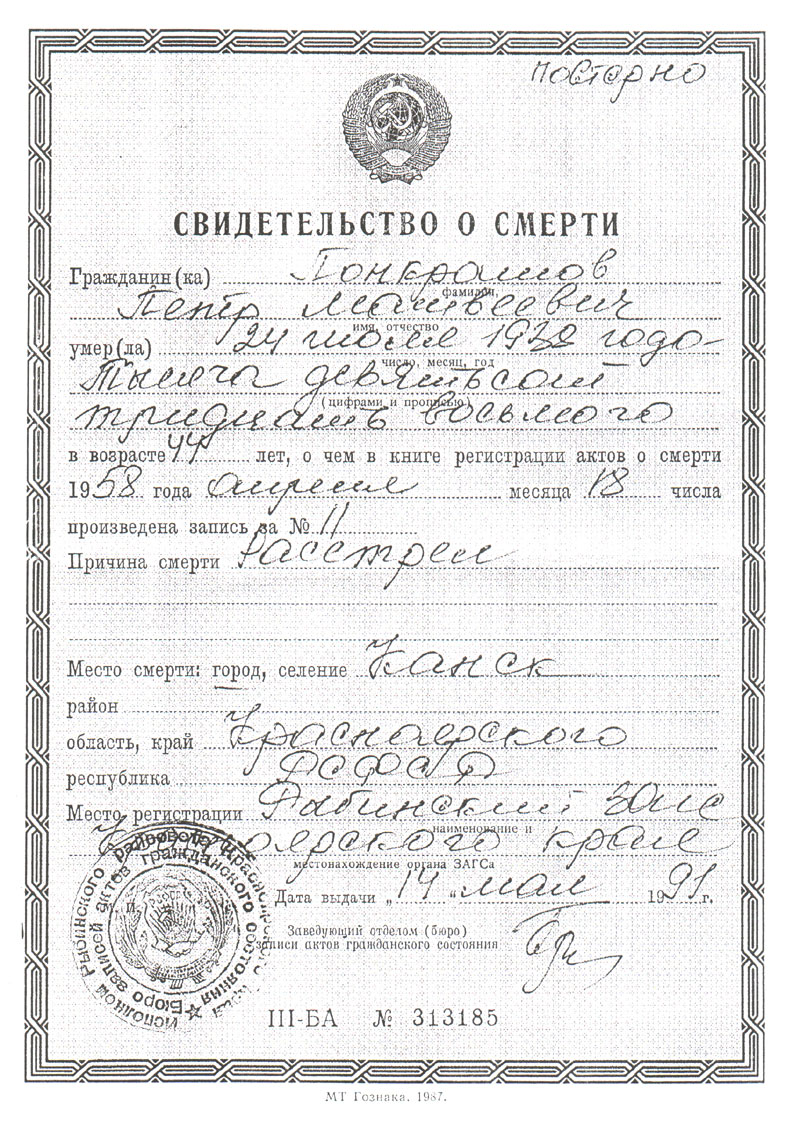 повторно
СВИДЕТЕЛЬСТВО О СМЕРТИ
Гражданин(ка) Понкратов
фамилия,
Петр Матвеевич
имя, отчество
умер(ла) 24 июля 1938 года
число, месяц, год
тысяча девятьсот
(цифрами и прописью)
тридцать восьмого
в возрасте 44 лет, о чем в книге регистрации актов о смерти
1958 года апреля месяца 18 числа
произведена запись за № 11
Причина смерти Расстрел
Место смерти: город, селение Канск
район
область, край Красноярского
республика РСФСР
Место регистрации Рыбинский ЗАГС
наименование и
Красноярского края
местонахождение органа ЗАГСа
Дата выдачи „14“ мая 1991 г.
Заведующий отделом (бюро)
записи актов гражданского состояния
Исполком Рыбинского райсовета Красноярского края
Бюро записей актов гражданского состояния
III-БА № 313185
МТ Гознака, 1987.